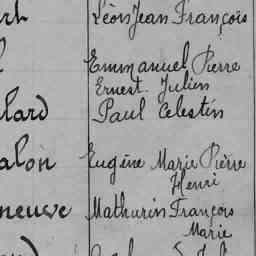 Léon Jean François
Emmanuel Pierre
Ernest Julien
lard Paul Célestin
alon Eugène Marie Pierre
Henri
neuve Mathurin François
Marie